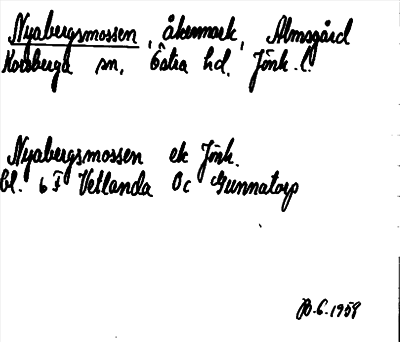 Nyabergsmossen, åkermark, Almsgård
Korsberga sn, Östra hd, Jönk. l.
Nyabergsmossen ek Jönk.
bl. 6 F Vetlanda Oc Gunnatorp
1959